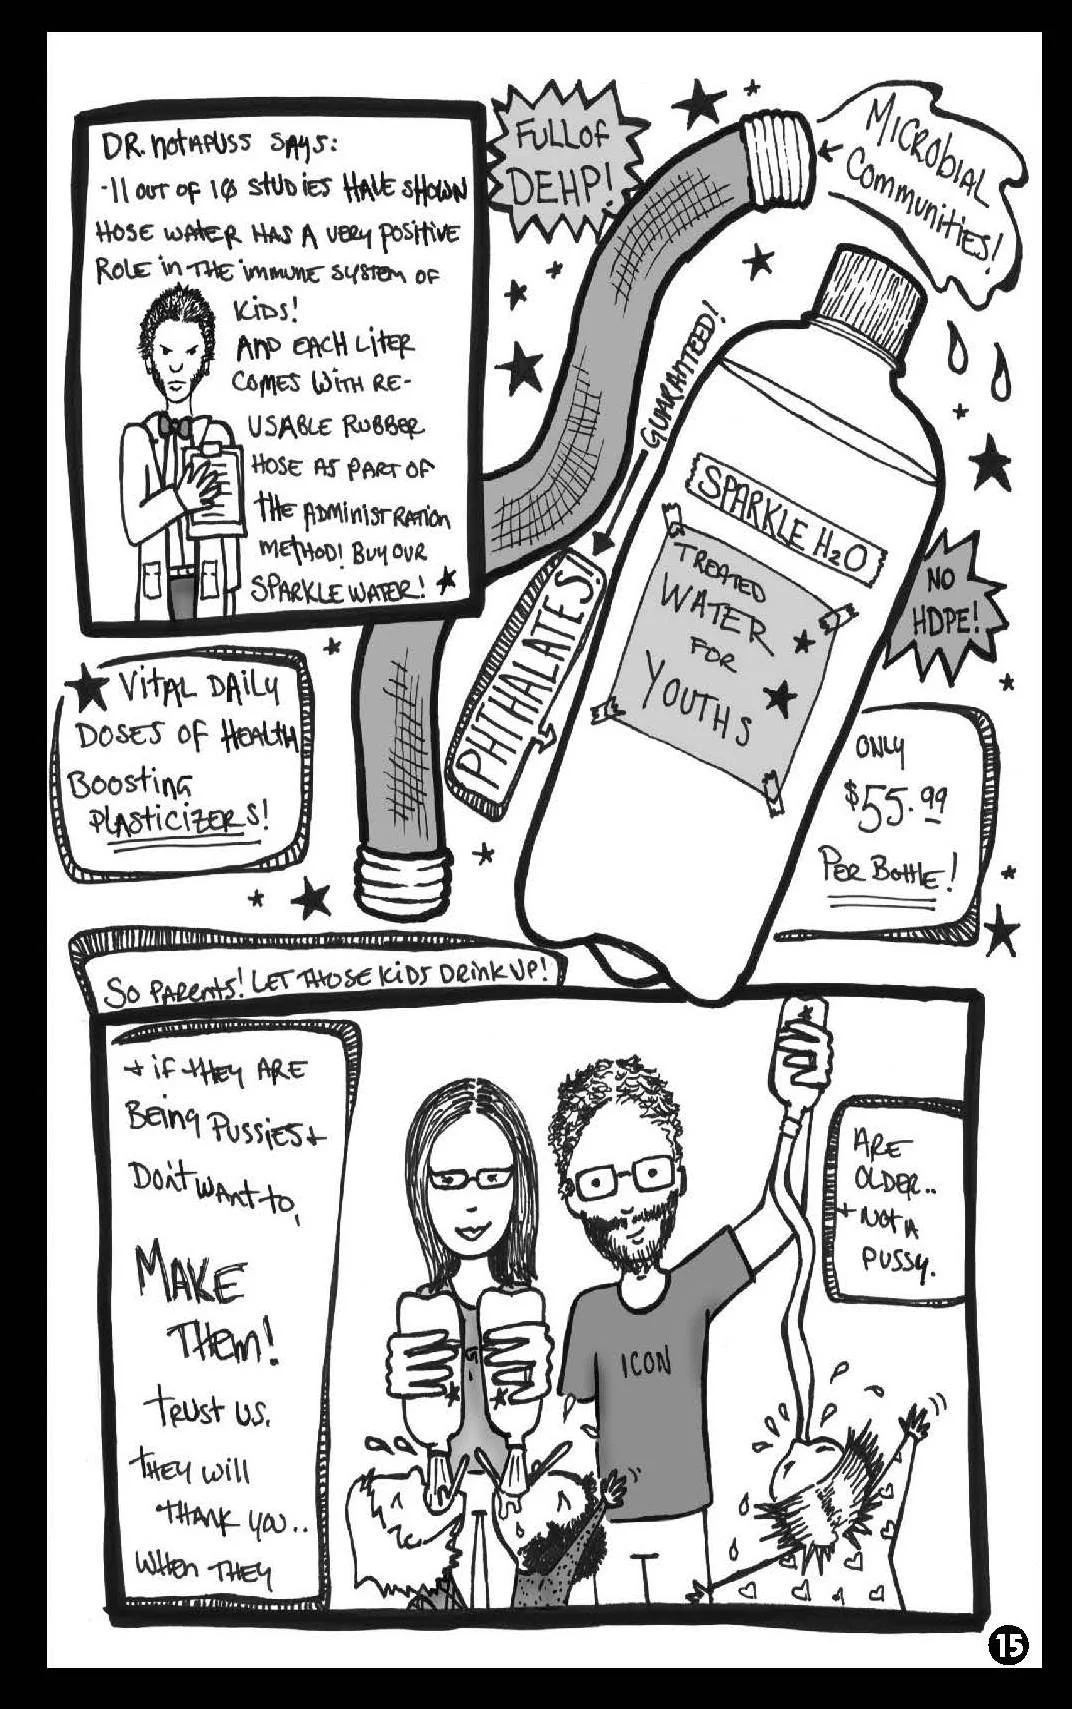 DR. NOTAPUSS SAYS:
-11 OUT OF 10 STUDIES HAVE SHOWN
HOSE WATER HAS A VERY POSITIVE
ROLE IN THE IMMUNE SYSTEM OF
KIDS!
AND EACH LITER
COMES WITH RE-
USABLE RUBBER
HOSE AS PART OF
THE ADMINISTRATION
METHOD! BUY OUR
SPARKLE WATER!
FULL OF
DEHP!
MICROBIAL
COMMUNITIES!
GUARANTEED!
PHTHALATES!
SPARKLE H2O
TREATED
WATER
FOR
YOUTHS
NO
HDPE!
VITAL DAILY
DOSES OF HEALTH
BOOSTING
PLASTICIZERS!
ONLY
$55.99
PER BOTTLE!
SO PARENTS! LET THOSE KIDS DRINK UP!
+ IF THEY ARE
BEING PUSSIES +
DON'T WANT TO,
MAKE
THEM!
TRUST US.
THEY WILL
THANK YOU..
WHEN THEY
ARE
OLDER..
+ NOT A
PUSSY.
ICON
15